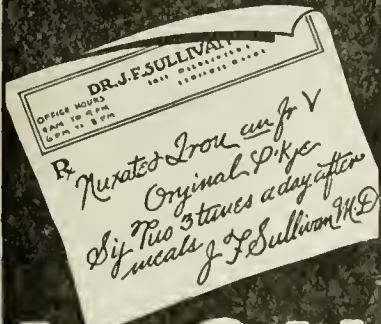 DR.J.F.SULLIVAN
OFFICE HOURS
PM TO 8 PM
℞ Nuxated Iron gr V
Original P'k'ge
Sig Two 3 times a day after
meals
J F Sullivan M.D